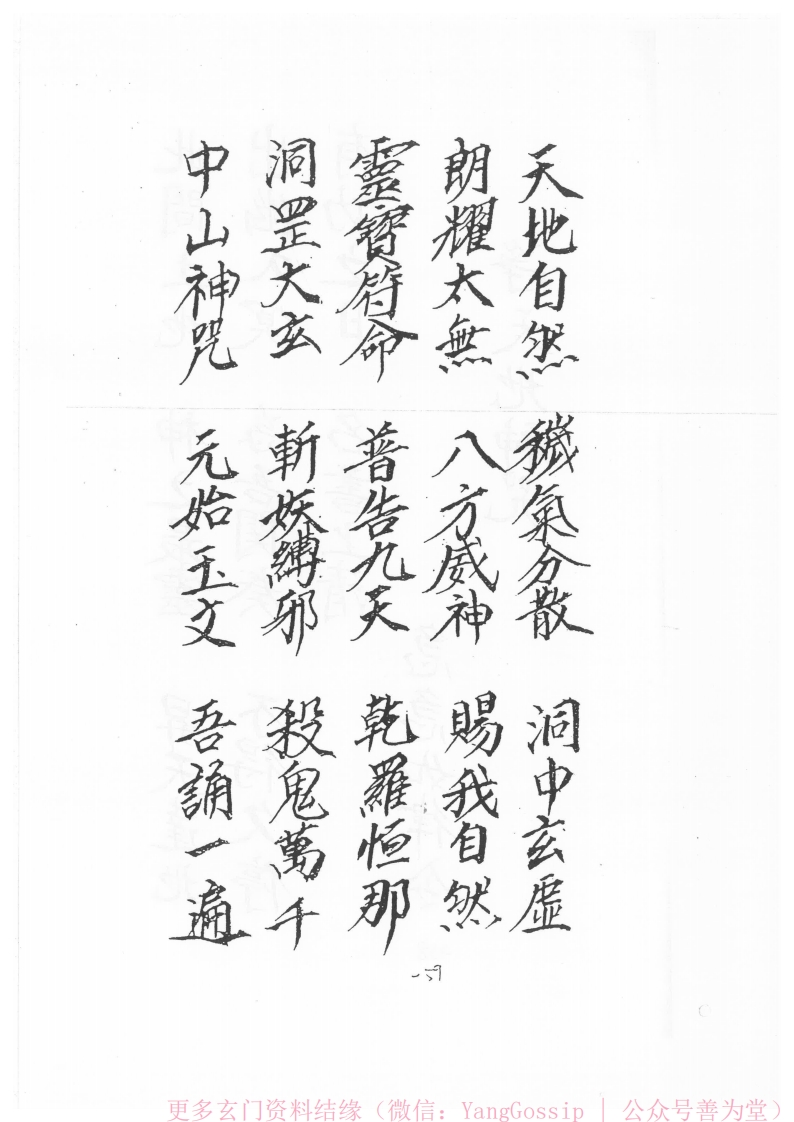 天地自然 穢氣分散 洞中玄虛
朗耀太無 八方威神 賜我自然
靈寶符命 普告九天 乾羅恒那
洞罡大玄 斬妖縛邪 殺鬼萬千
中山神咒 元始玉文 吾誦一遍
更多玄门资料结缘（微信：YangGossip | 公众号善为堂）